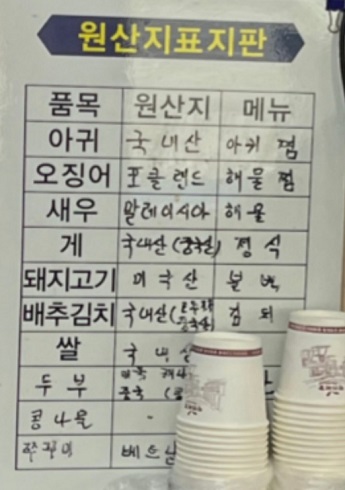 원산지표지판
품목 원산지 메뉴
아귀 국내산 아귀 찜
오징어 포클랜드 해물찜
새우 말레이시아 해물
게 국내산 (중국산) 정식
돼지고기 미국산 불백
배추김치 국내산 김치
쌀 국내산
두부 중국
콩나물 -
쭈꾸미 베트남